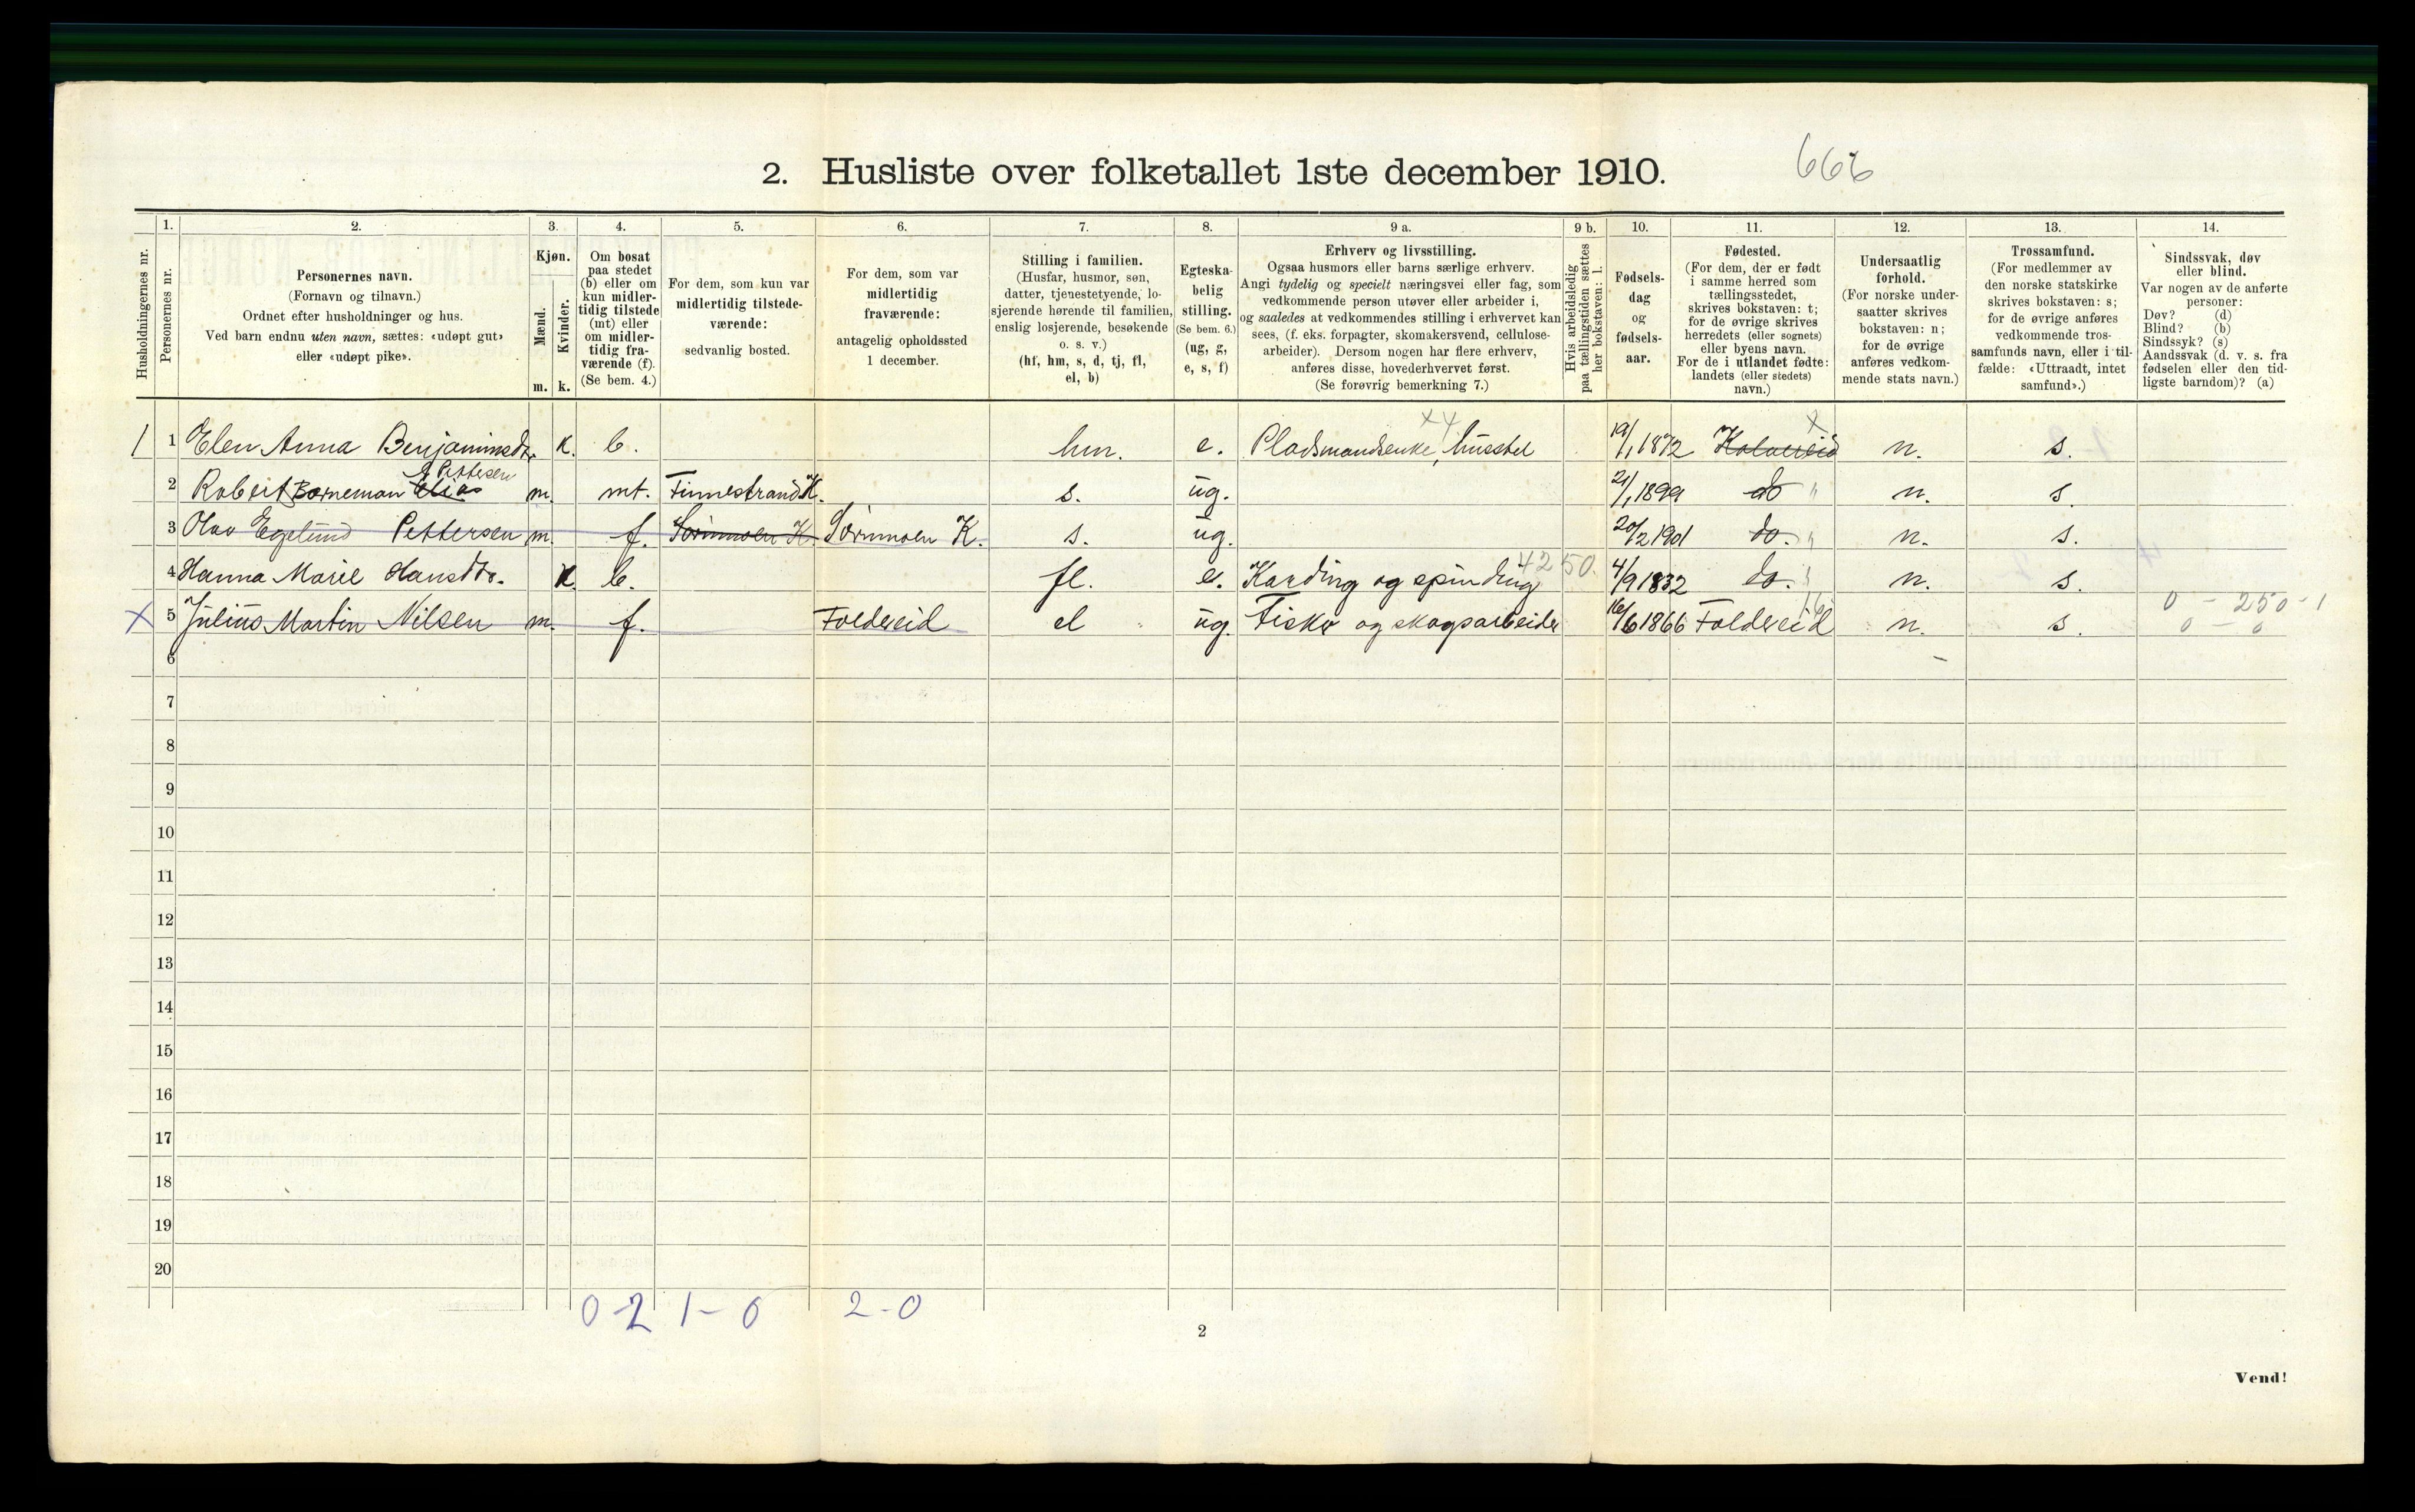 666
2. Husliste over folketallet 1ste december 1910.
1. 2. 3. 4. 5. 6. 7. 8. 9 a. 9 b. 10. 11. 12. 13. 14.
Husholdningernes nr.
Personernes nr.
Personernes navn.
(Fornavn og tilnavn.)
Ordnet efter husholdninger og hus.
Ved barn endnu uten navn, sættes: «udøpt gut»
eller «udøpt pike».
Kjøn.
Mænd.
Kvinder.
m. k.
Om bosat
paa stedet
(b) eller om
kun midler-
tidig tilstede
(mt) eller
om midler-
tidig fra-
værende (f).
(Se bem. 4.)
For dem, som kun var
midlertidig tilstede-
værende:
sedvanlig bosted.
For dem, som var
midlertidig
fraværende:
antagelig opholdssted
1 december.
Stilling i familien.
(Husfar, husmor, søn,
datter, tjenestetyende, lo-
sjerende hørende til familien,
enslig losjerende, besøkende
o. s. v.)
(hf, hm, s, d, tj, fl,
el, b)
Egteska-
belig
stilling.
(Se bem. 6.)
(ug, g,
e, s, f)
Erhverv og livsstilling.
Ogsaa husmors eller barns særlige erhverv.
Angi tydelig og specielt næringsvei eller fag, som
vedkommende person utøver eller arbeider i,
og saaledes at vedkommendes stilling i erhvervet kan
sees, (f. eks. forpagter, skomakersvend, cellulose-
arbeider). Dersom nogen har flere erhverv,
anføres disse, hovederhvervet først.
(Se forøvrig bemerkning 7.)
Hvis arbeidsledig
paa tællingstiden sættes
her bokstaven: l.
Fødsels-
dag
og
fødsels-
aar.
Fødested.
(For dem, der er født
i samme herred som
tællingsstedet,
skrives bokstaven: t;
for de øvrige skrives
herredets (eller sognets)
eller byens navn.
For de i utlandet fødte:
landets (eller stedets)
navn.)
Undersaatlig
forhold.
(For norske under-
saatter skrives
bokstaven: n;
for de øvrige
anføres vedkom-
mende stats navn.)
Trossamfund.
(For medlemmer av
den norske statskirke
skrives bokstaven: s;
for de øvrige anføres
vedkommende tros-
samfunds navn, eller i til-
fælde: «Uttraadt, intet
samfund».)
Sindssvak, døv
eller blind.
Var nogen av de anførte
personer:
Døv? (d)
Blind? (b)
Sindssyk? (s)
Aandssvak (d. v. s. fra
fødselen eller den tid-
ligste barndom)? (a)
x 4 x
1 1 Elen Anna Benjaminsdtr. K. b. hm. e. Pladsmandsenke, husstel 19/1 1872 Kolvereid n. s.
Pettersen
2 Robert Borneman Elias m. mt. Finnestrand K. s. ug. 21/1 1899 do " n. s.
3 Olav Egelund Pettersen m. f. Sørmoen K. Sørmoen K. s. ug. 20/2 1901 do. " n. s.
4250.
4 Hanna Marie Hansdtr. K. b. fl. e. Karding og spinding 4/9 1832 do. " n. s.
0 - 250 - 1
X 5 Julius Martin Nilsen m. f. Foldereid el ug. Fisker og skogsarbeider 16/6 1866 Foldereid n. s. 0 - 0
6
7
8
9
10
11
12
13
14
15
16
17
18
19
20
0-2 1-0 2-0
2
Vend!